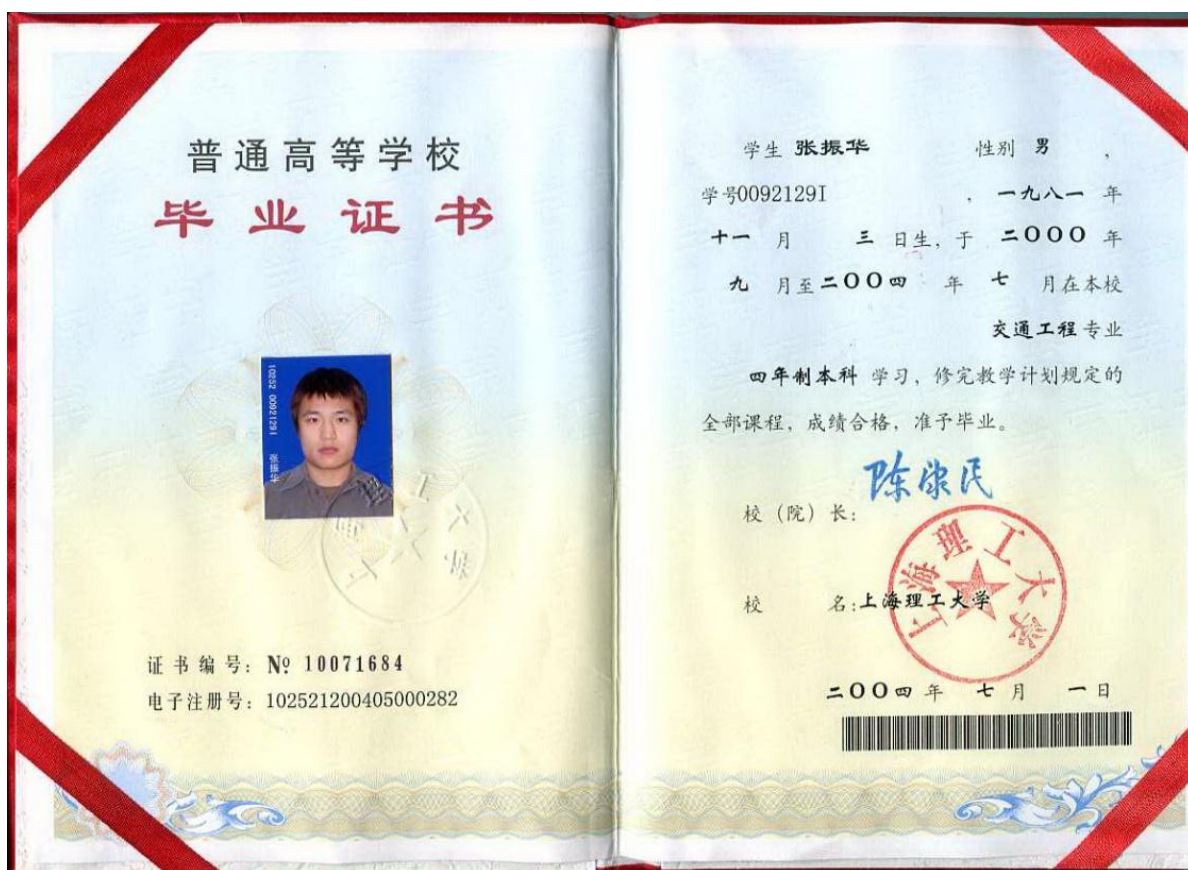 普通高等学校
毕业证书
10252 00921291 张振华
证书编号: № 10071684
电子注册号: 102521200405000282
学生 张振华 性别 男 ,
学号0092129I , 一九八一 年
十一 月 三 日生, 于 二OOO 年
九 月至 二OO四 年 七 月在本校
交通工程 专业
四年制本科 学习, 修完教学计划规定的
全部课程, 成绩合格, 准予毕业。
陈康民
校(院)长:
上海理工大学
校 名:上海理工大学
二OO四 年 七 月 一 日